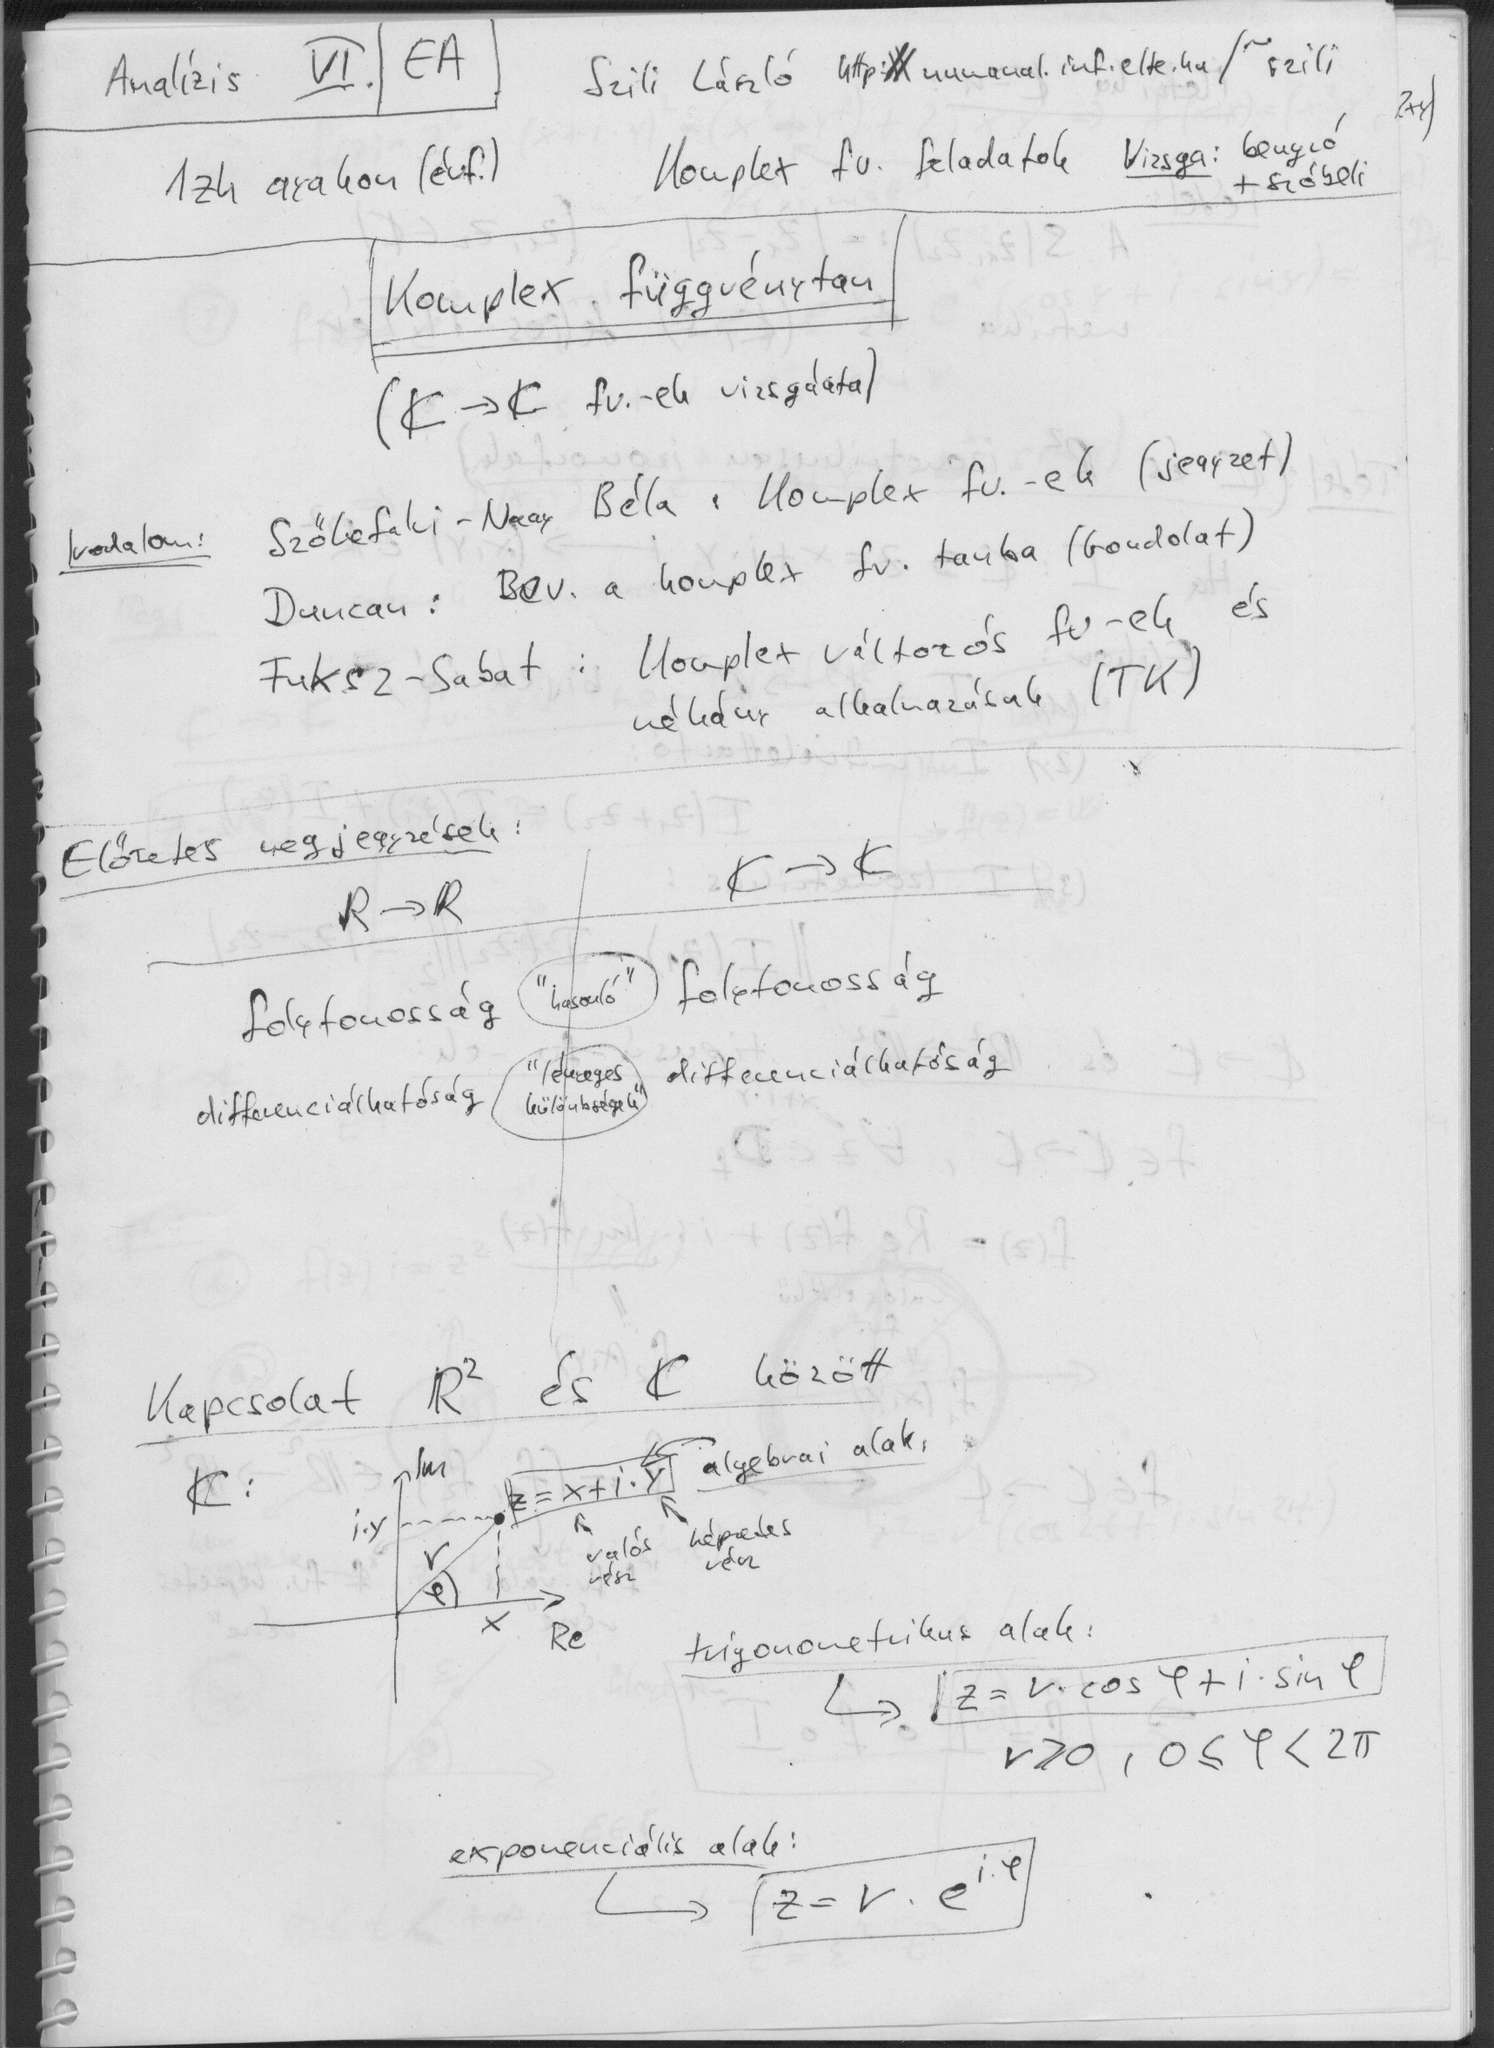 Analízis VI. EA
Szili László http:// numanal.inf.elte.hu/~szili
1zh gyakon (évf.)
Komplex fv. feladatok
Vizsga: beugró
+ szóbeli
Komplex függvénytan
(ℂ → ℂ fv.-ek vizsgálata)
Irodalom:
Szőkefalvi-Nagy Béla: Komplex fv.-ek (jegyzet)
Duncan: Bev. a komplex fv. tanba (Gondolat)
Fuksz-Sabat: Komplex változós fv-ek és
néhány alkalmazásaik (TK)
Előzetes megjegyzések:
ℝ → ℝ
ℂ → ℂ
folytonosság "hasonló" folytonosság
differenciálhatóság "lényeges
különbségek" differenciálhatóság
Kapcsolat ℝ² és ℂ között
ℂ:
Im
z = x + i·y
algebrai alak,
i·y
valós
rész
képzetes
rész
r
φ
x
Re
trigonometrikus alak:
z = r·cos φ + i·sin φ
r ≥ 0, 0 ≤ φ < 2π
exponenciális alak:
z = r · e^{i·φ}